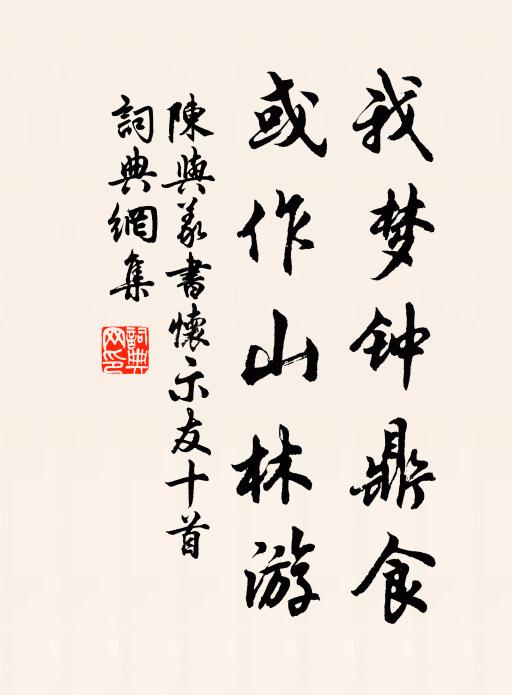 我梦钟鼎食
或作山林游
陳與義書懷示友十首
詞典網集
詞典网印